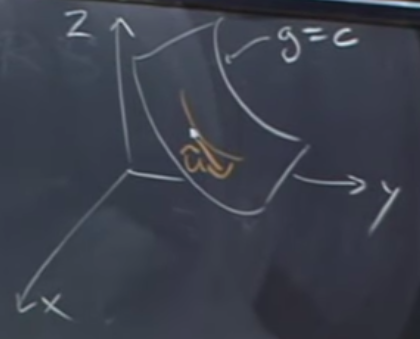 z
g=c
ã
y
x